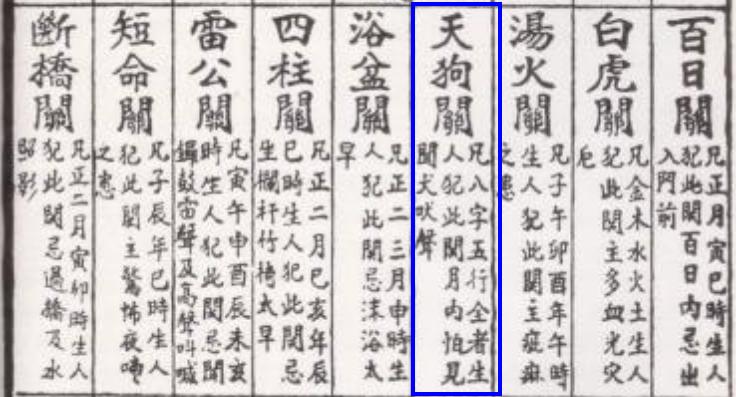 百日關
凡正月寅巳時生人
犯此関百日內忌出
入門前
白虎關
凡金木水火土生人
犯此関主多血光灾
厄
湯火關
凡子午卯酉年午時
生人犯此関主疵麻
之患
天狗關
凡八字五行全者生
人犯此関月內怕見
聞犬吠聲
浴盆關
凡正二三月申時生
人犯此関忌沫浴太
早
四柱關
凡正二月巳亥年辰
巳時生人犯此関忌
生欄杆竹椅太早
雷公關
凡寅午申酉辰未亥
時生人犯此関忌聞
鑼鼓雷聲及高聲叫喊
短命關
凡子辰年巳時生人
犯此関主驚怖夜啼
之患
斷橋關
凡正二月寅卯時生人
犯此関忌過橋及水
照影